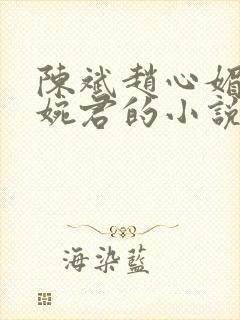 陳斌趙心媚
婉君的小說
海染藍